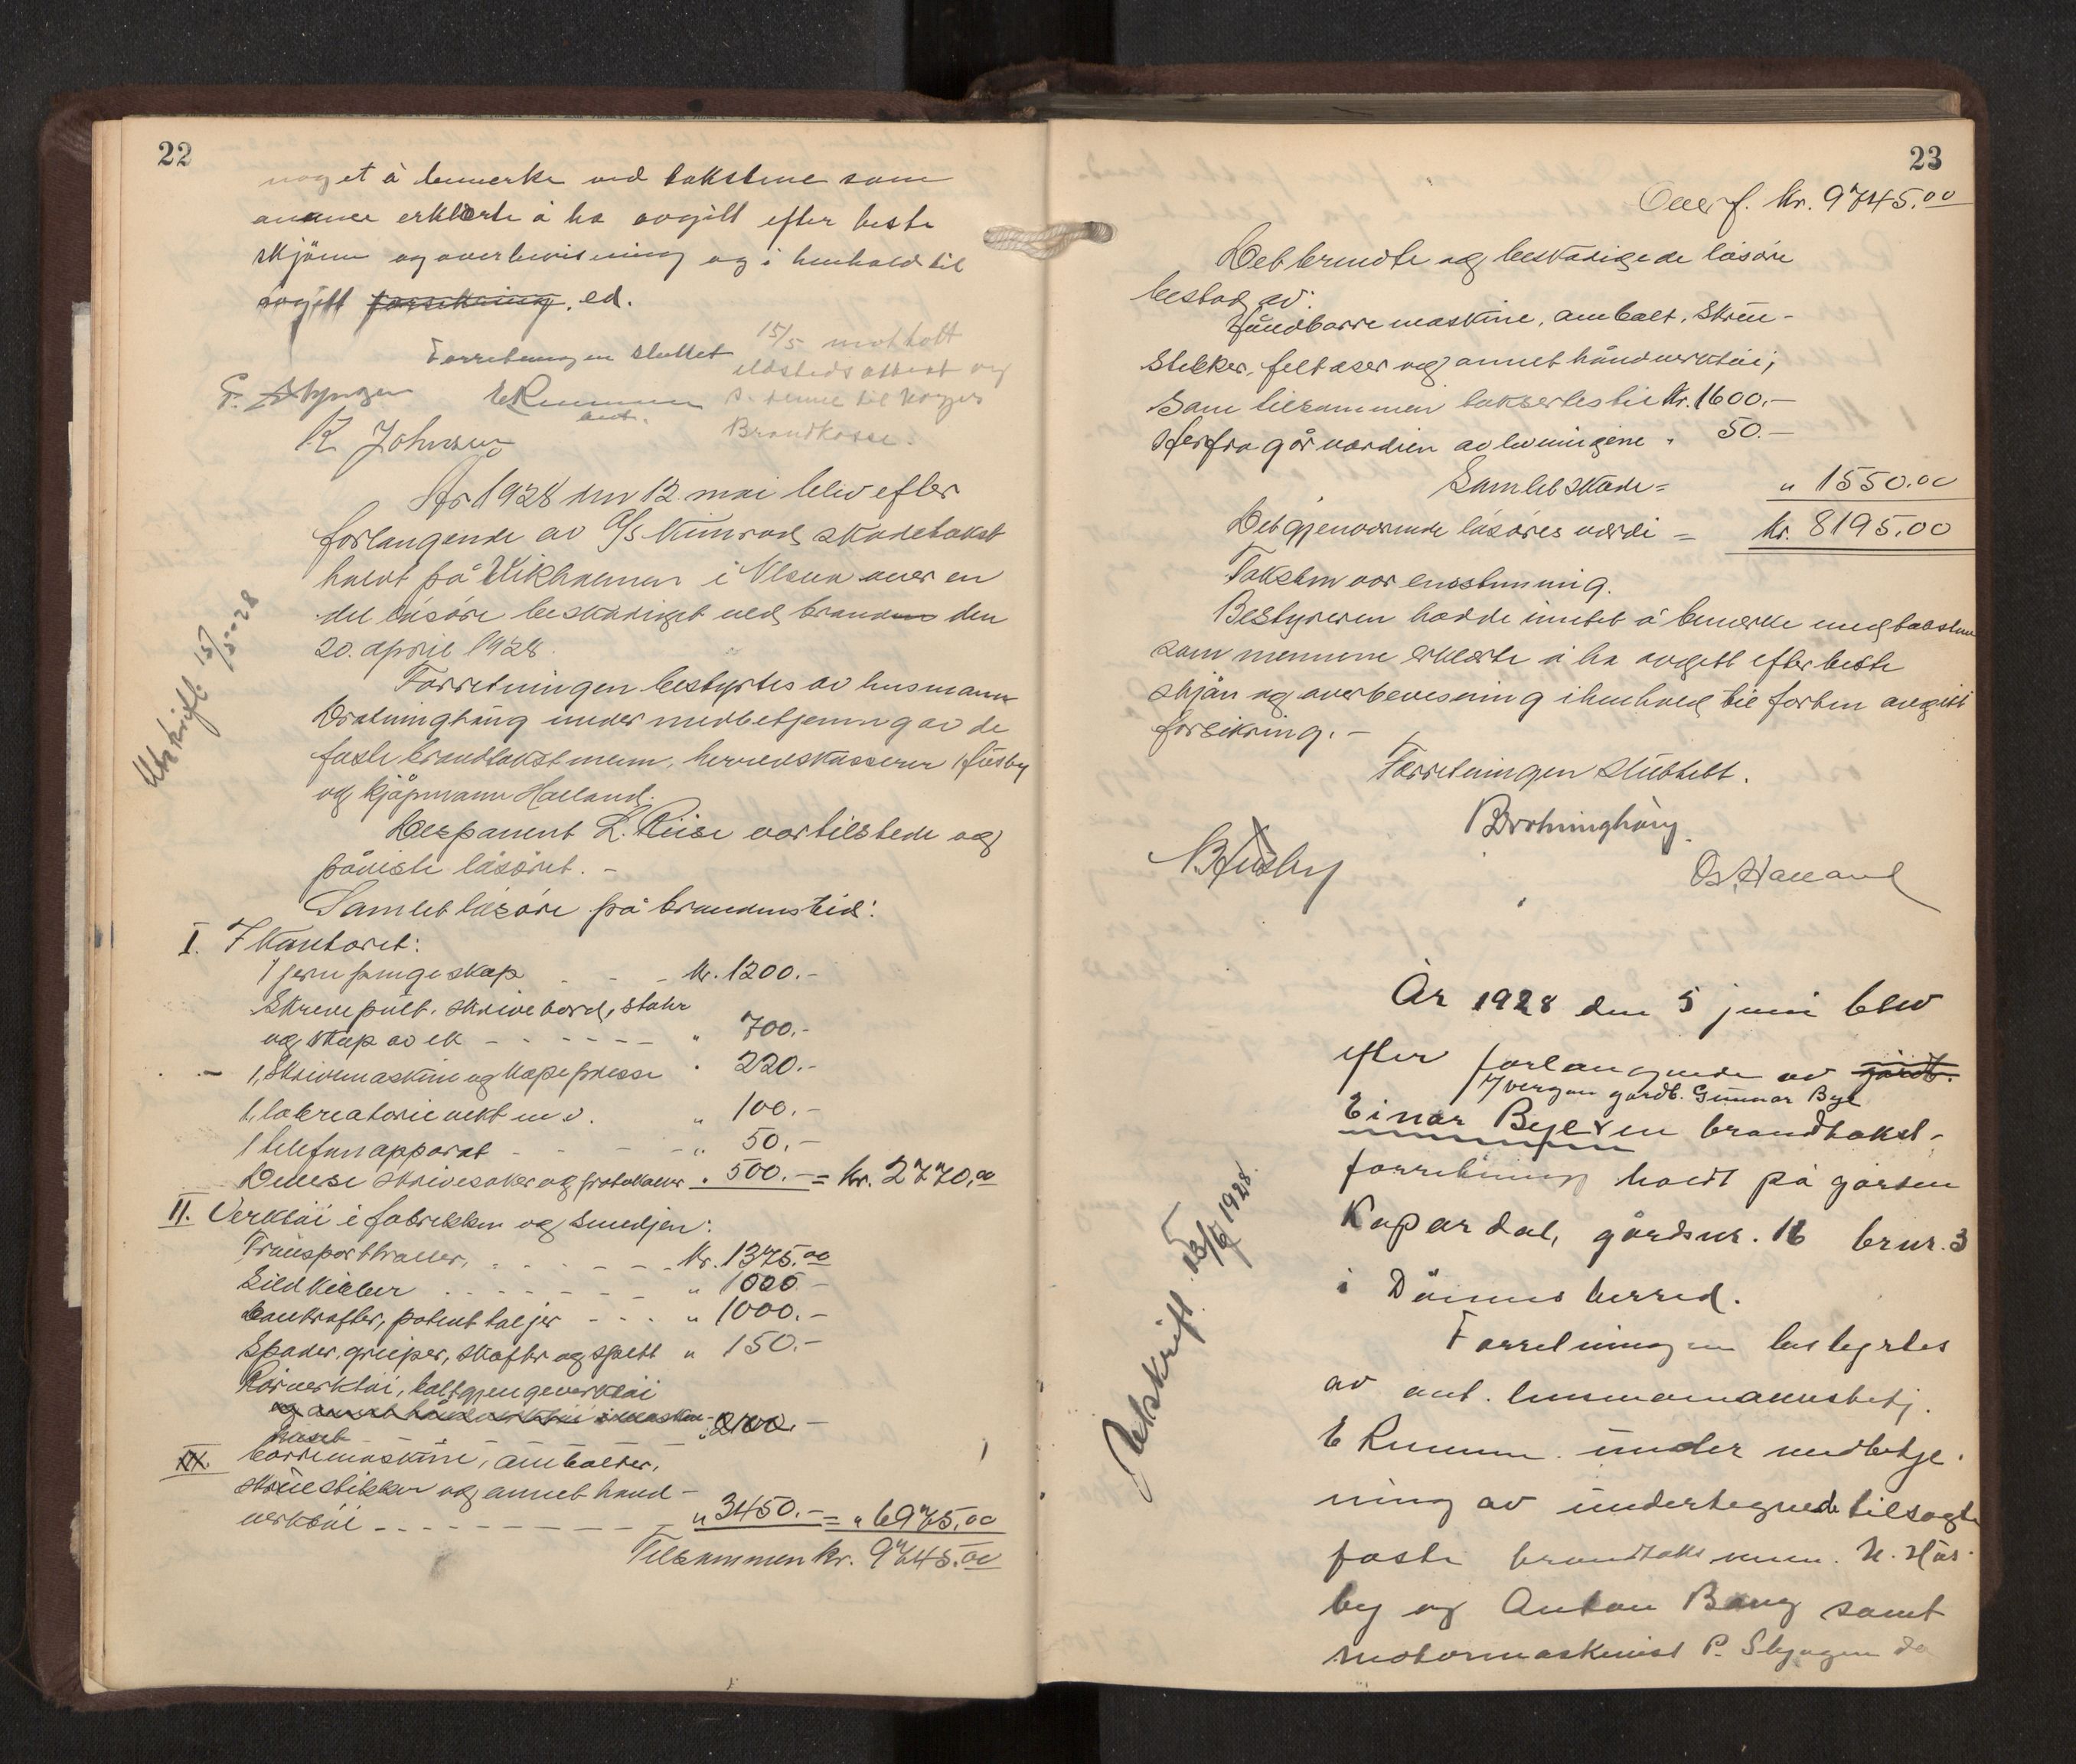 22
noget å bemerke ved takstene som
mennene erklærte å ha avgitt efter beste
skjönn og overbevisning og i henhold til
avgitt forsikring. ed.
Forretningen sluttet
15/5 mottatt
ildstedsattest og
s. denne til Norges
Brandkasse.
P. Stjyngen
ERemmen
aut.
K Johnsen
År 1928 den 12 mai blev efter
forlangende av A/S Nimrod skadetakst
holdt på Vikholmen i Nesna over en
del lösöre beskadiget ved branden den
20. april 1928.
Forretningen bestyrtes av lensmann
Dronninghaug under medbetjening av de
faste brandtakstmenn, herredskasserer Husby
og kjöpmann Halland.
Disponent L. Riise var tilstede og
påviste lösöret. –
Samlet lösöre på brandens tid:
Utskrift 15/5-28
I. I kontoret:
1 jern pengeskap - - - kr. 1200.-
Skrivepult, skrivebord, stoler
og skap av ek - - - - - - " 700.-
1, Skrivemaskine og kopipresse " 220.-
1, laboratorievekt m.v. " 100.-
1 telefonapparat - - - - " 50.-
Diverse skrivesaker og protokoller " 500.- = kr. 2770,00
II. Verktöi i fabrikken og smedjen:
Transporttraller, - - - - - - kr. 1375.00
Sildkibber - - - - - - " 1000 -
Tankrafter, patent taljer - - - " 1000.-
Spader, greiper, skafter og spett " 150.-
Rörverktöi, boltgjengeverktöi
og annet håndverktöi i maskin-
huset - - - - " 200.-
III. borremaskine, ambolter,
skruestikker og annet hand-
verktöi - - - - - - - " 3450.- = " 6975,00
Tilsammen kr. 9745.00
23
Overf. kr. 9745.00
Det brendte og beskadigede lösöre
bestod av:
Håndborremaskine, ambolt, skrue-
stikker, feltesser og annet håndverktöi,
som tilsammen takseres til kr. 1600.-
Herfra går verdien av levningene " 50.-
Samlet skade = " 1550.00
Det gjenværende lösöres verdi = kr. 8195.00
Taksten var enstemmig.
Bestyreren hadde intet å bemerke med taksten
som mennene erklærte å ha avgitt efter beste
skjön og overbevisning i henhold til forben avgitt
forsikring. –
Forretningen sluttet.
BDronninghaug
BHusby
Os. Halland
År 1928 den 5 juni blev
efter forlangende av gårdb.
/vergen gårdb. Gunnar Bye
Einar Bye en brandtakst-
forretning holdt på gården
Kopardal, gårdsnr. 16 brnr. 3
i Dönnes herred.
Forretningen bestyrtes
av aut. lensmannsbetj.
E Remmen under medbetje-
ning av undertegnede tilsagte
faste brandtakstmenn. N. Hus-
by og Anton Bang samt
motormaskinist P. Stjyngen da
Utskrift 13/6 1928.